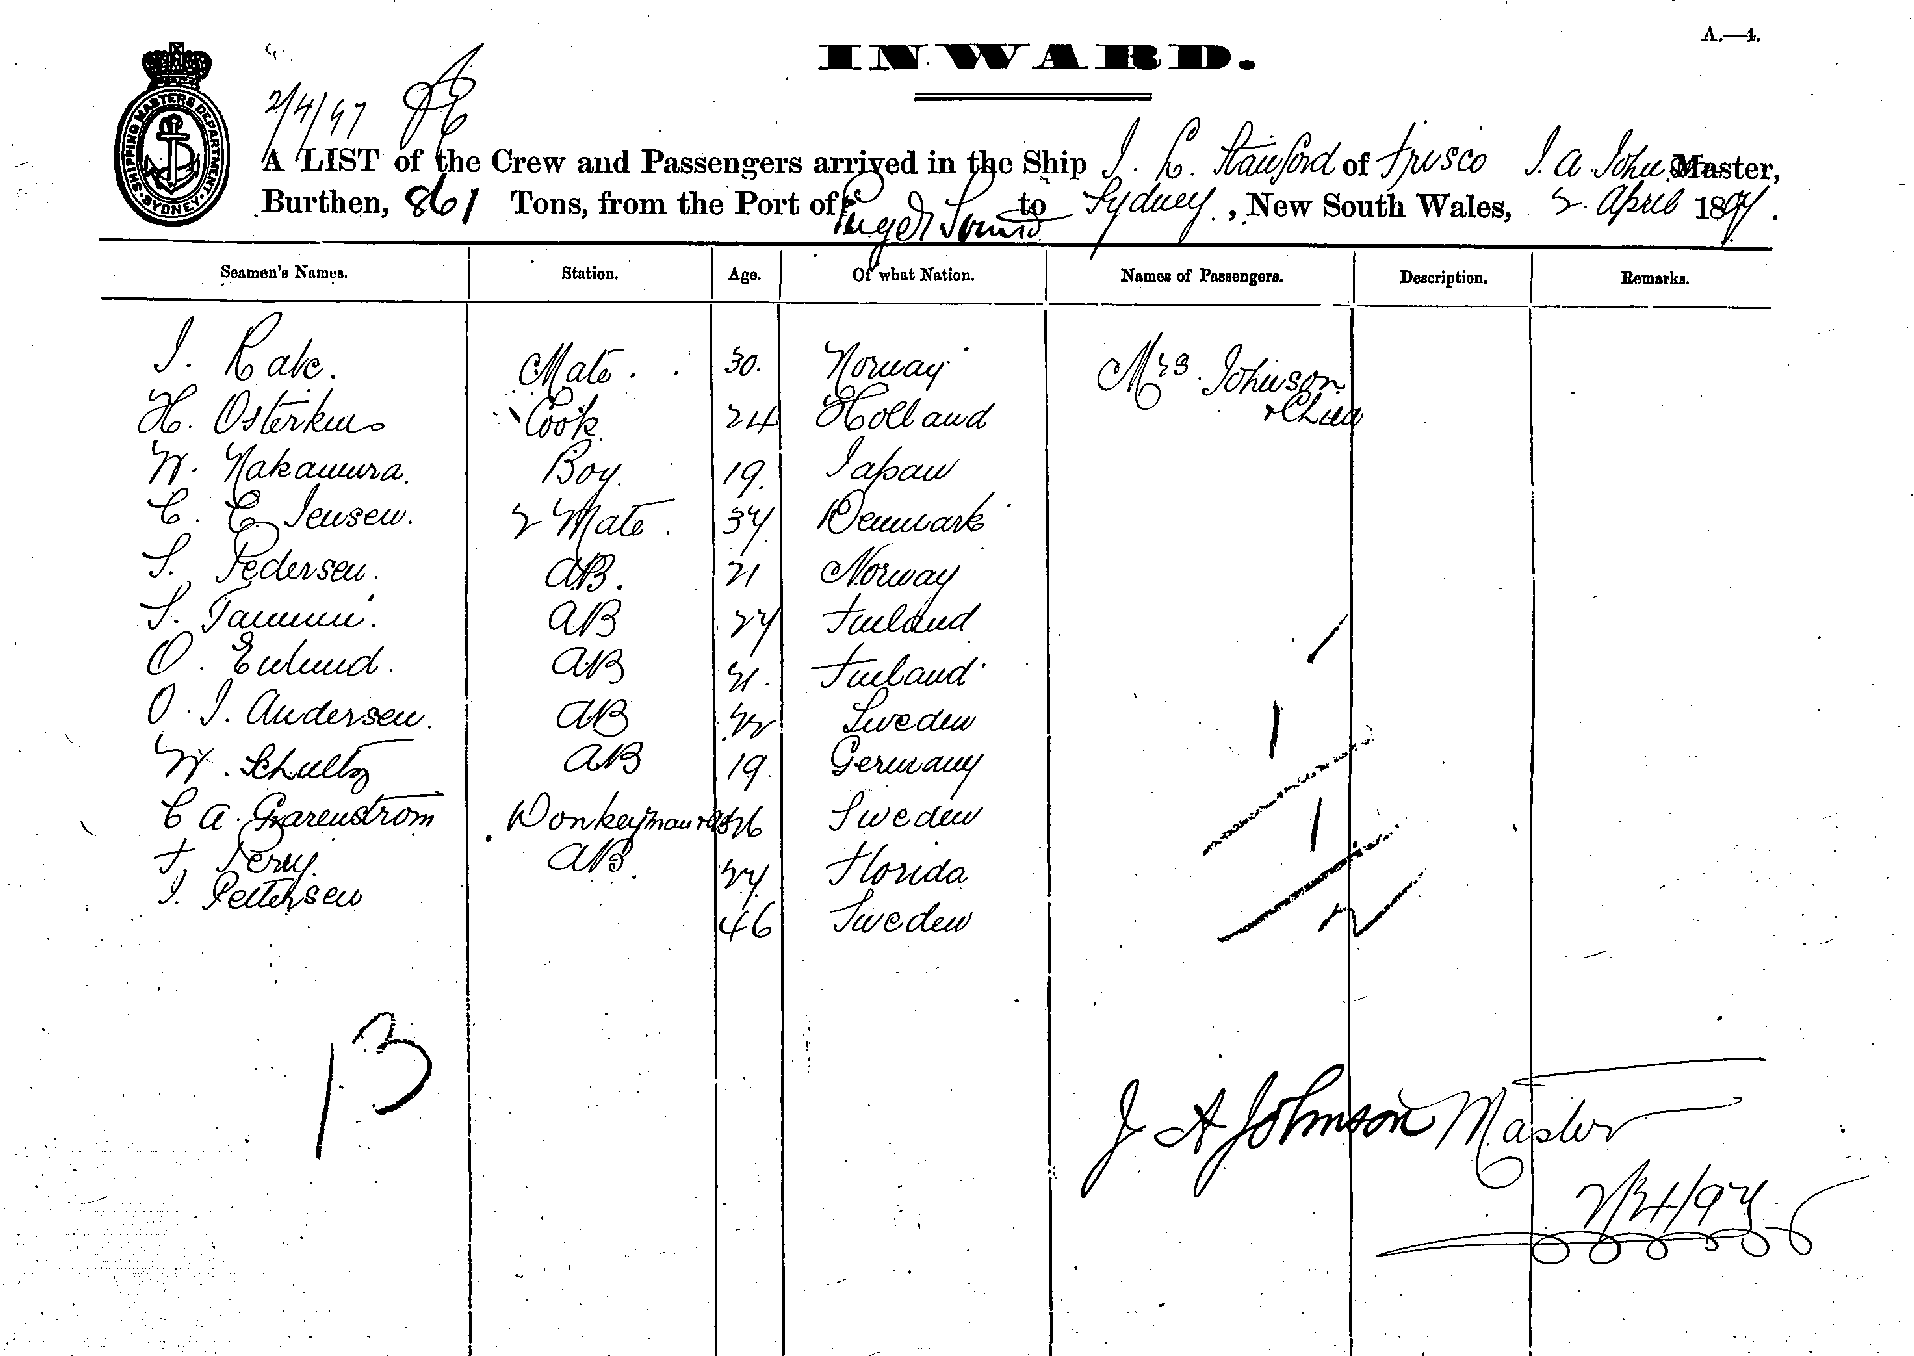 A.—4.
INWARD.
SHIPPING MASTERS DEPARTMENT SYDNEY
2/4/97
A LIST of the Crew and Passengers arrived in the Ship J. L. Stanford of Frisco J. A. Johnson Master,
Burthen, 861 Tons, from the Port of Puget Sound to Sydney, New South Wales, 2 April 1897.
Seamen's Names. Station. Age. Of what Nation. Names of Passengers. Description. Remarks.
Mate. 30. Norway Mrs. Johnson
H. Cook 24 Holland
W. Nakamura. Boy. 19. Japan
C. C. Jensen. 2 Mate. 37 Denmark
S. Pedersen. AB. 21 Norway
S. Tammi. AB 27 Finland
O. Enlund. AB 21. Finland
O. J. Andersen. AB 22 Sweden
W. Schultz AB 19. Germany
C A Donkeyman Sweden
F. Perry. AB. 27. Florida
J. Pettersen 46 Sweden
1
1
1
2
13
J A Johnson Master
2/4/97